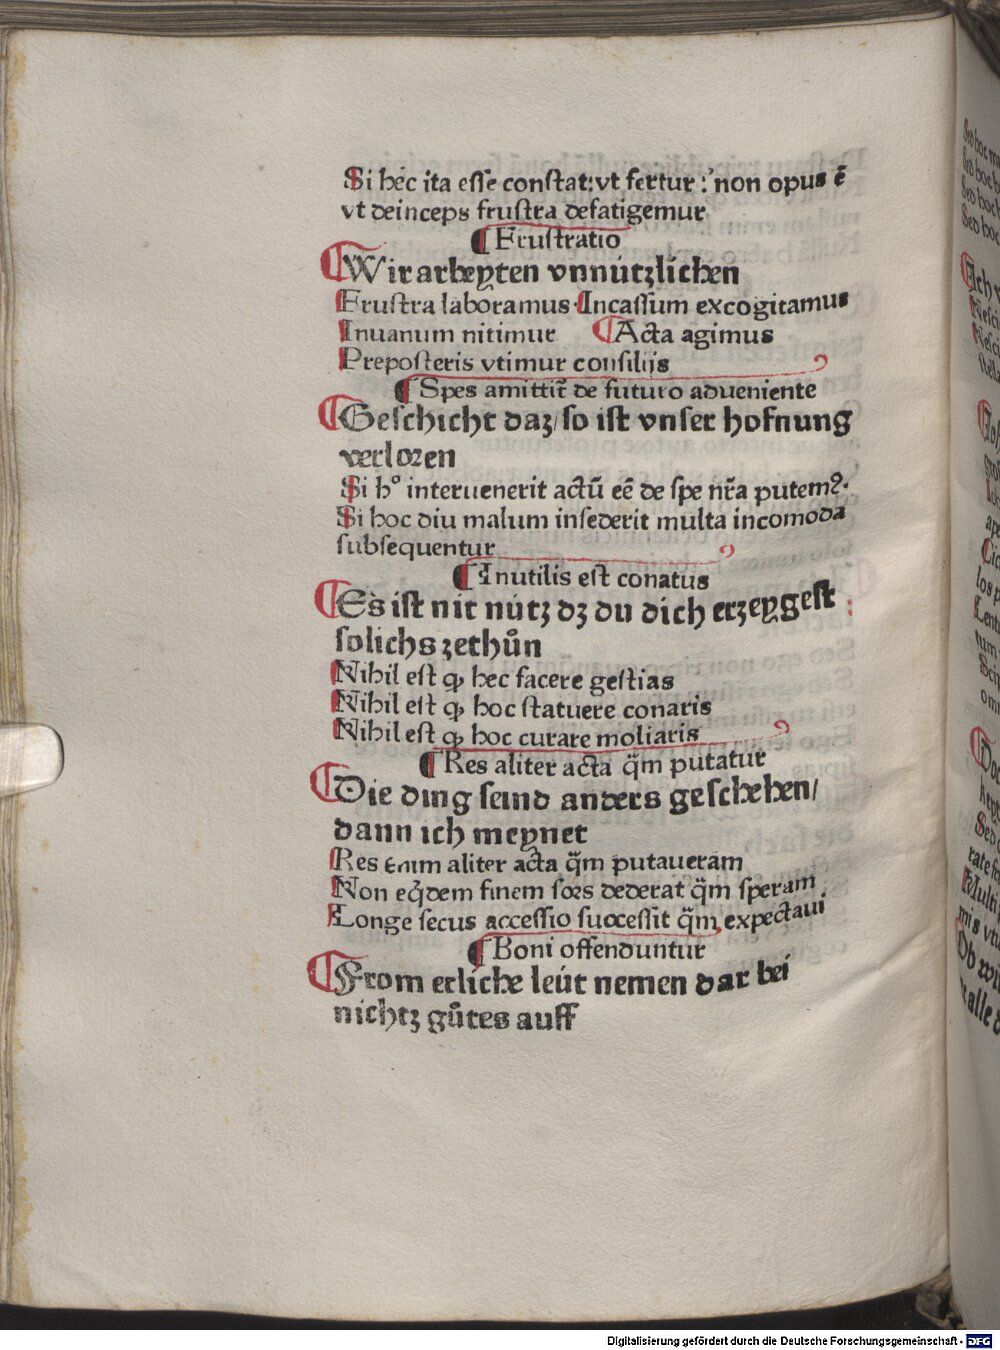 Si hec ita esse constat: vt fertur: non opus ē
vt deinceps frustra defatigemur
¶ Frustratio
¶ Wir arbeyten vnnützlichen
Frustra laboramus. Incassum excogitamus
Inuanum nitimur ¶ Acta agimus
Preposteris vtimur consilijs
¶ Spes amittit̄ de futuro adueniente
¶ Geschicht daz/ so ist vnser hofnung
verloren
Si hº interuenerit actū eē de spe nr̄a putemꝰ.
Si hoc diu malum insederit multa incomoda
subsequentur
¶ Inutilis est conatus
¶ Es ist nit nútz dz du dich erzeygest
solichs zethůn
Nihil est ꝙ hec facere gestias
Nihil est ꝙ hoc statuere conaris
Nihil est ꝙ hoc curare moliaris
¶ Res aliter acta q̄m putatur
¶ Die ding seind anders geschehen/
dann ich meynet
Res enim aliter acta q̄m putaueram
Non eq̇dem finem sors dederat q̄m speram
Longe secus accessio successit q̄m expectaui
¶ Boni offenduntur
¶ From erliche leút nemen dar bei
nichtz gůtes auff
Sed hoc
Sed hoc
Sed hoc
Sed hoc
Digitalisierung gefördert durch die Deutsche Forschungsgemeinschaft - DFG